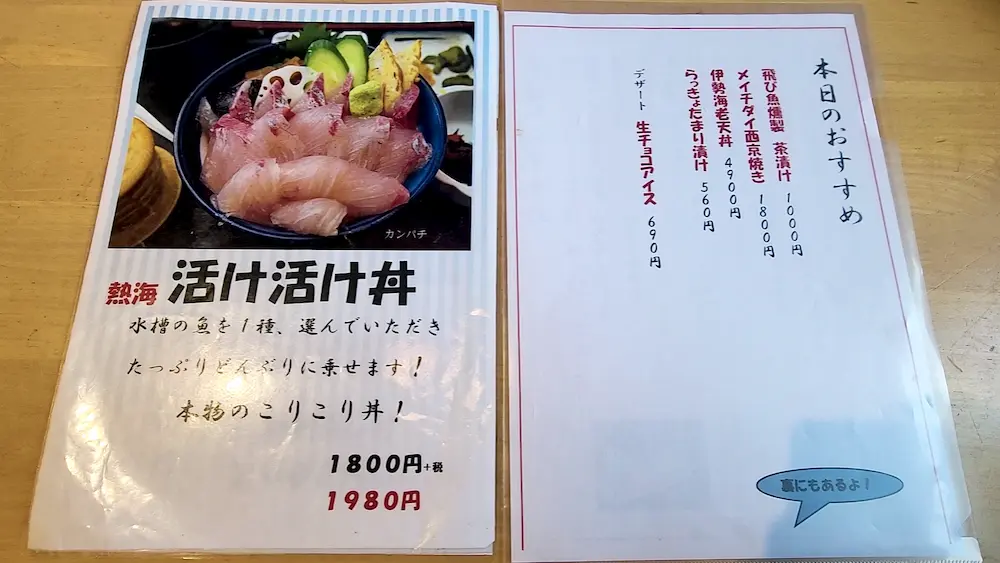 カンパチ
熱海 活け活け丼
水槽の魚を1種、選んでいただき
たっぷりどんぶりに乗せます!
本物のこりこり丼!
1800円+税
1980円
本日のおすすめ
飛び魚燻製 茶漬け 1000円
メイチダイ西京焼き 1800円
伊勢海老天丼 4900円
らっきょたまり漬け 560円
デザート 生チョコアイス 690円
裏にもあるよ!